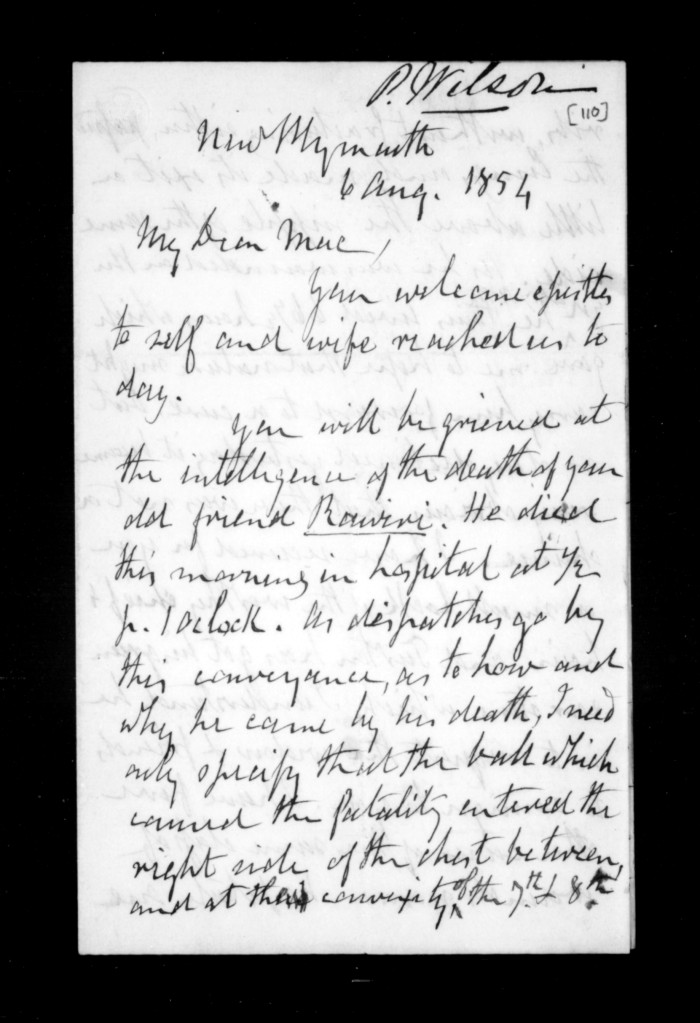 P. Wilson
[110]
New Plymouth
6 Aug. 1854
My Dear Mac,
Your welcome epistles
to self and wife reached us to
day.
You will be grieved at
the intelligence of the death of your
old friend Rawiri. He died
this morning in hospital at ½
p. 1 oclock. As despatches go by
this conveyance, as to how and
why he came by his death, I need
only specify that the ball which
caused the fatality entered the
right side of the chest between,
and at the convexity, of the 7th & 8th